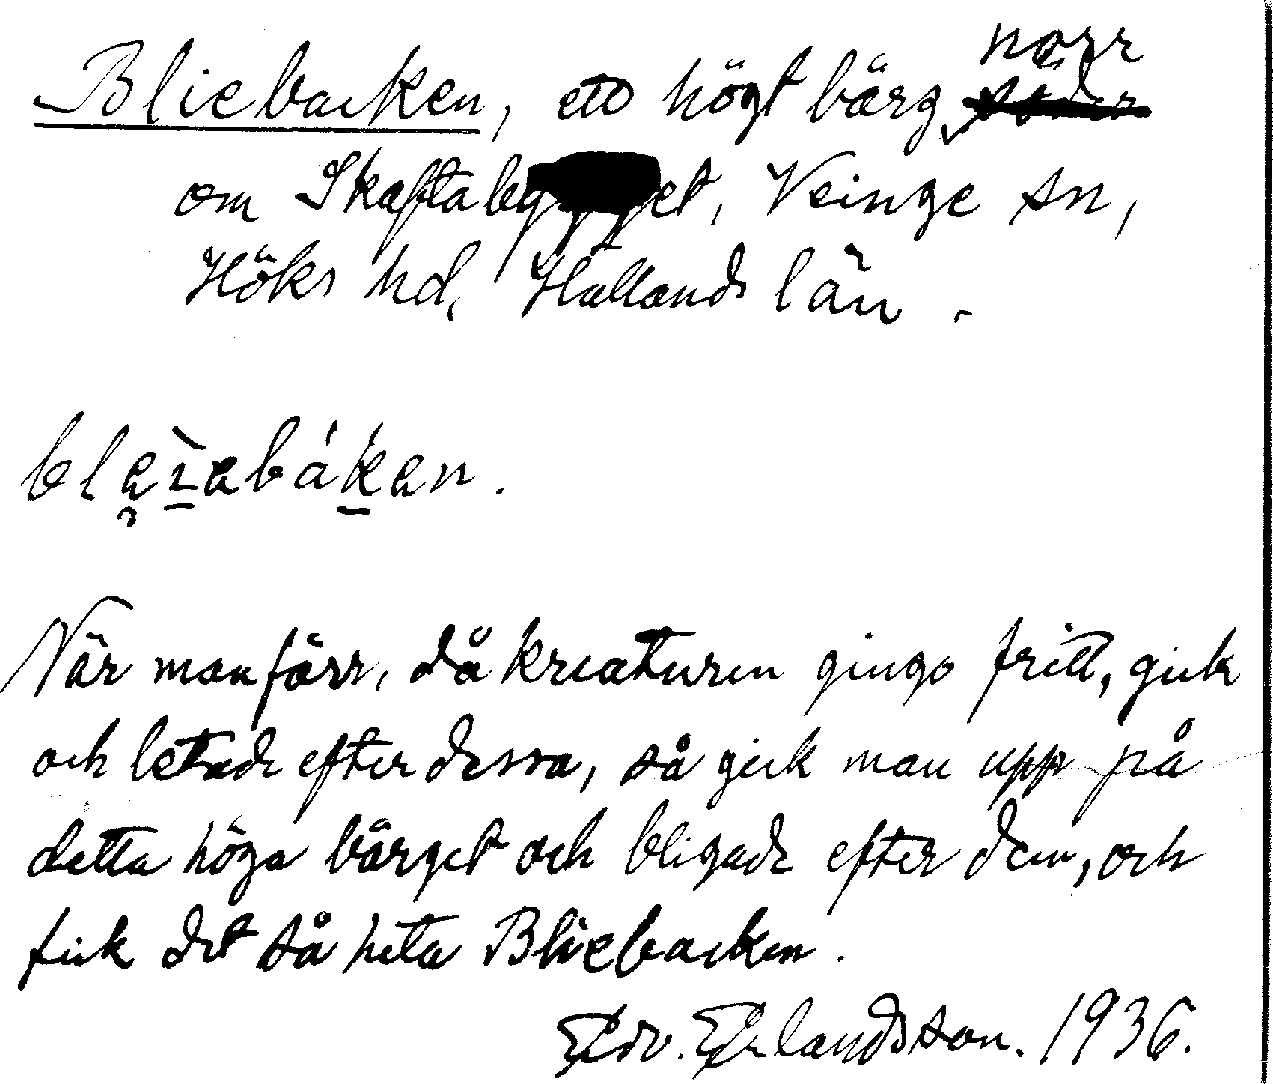 Bliebacken, ett högt bärg norr
om Skaftabygget, Veinge sn,
Höks hd, Hallands län.
När man förr, då kreaturen gingo fritt, gick
och letade efter dessa, så gick man upp på
detta höga bärget och bligade efter dem, och
fick det så heta Bliebacken.
Edv. Erlandsson. 1936.